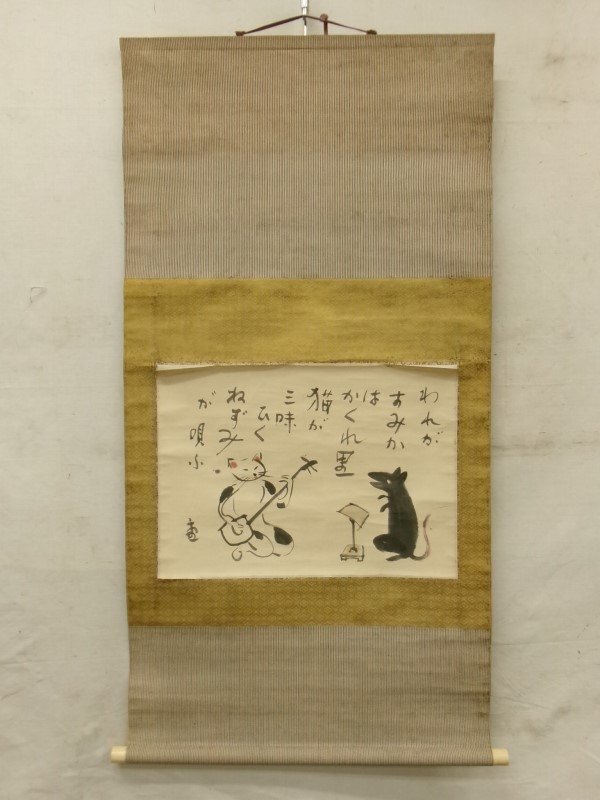 われが
すみか
は
かくれ里
猫が
三味
ひく
ねずみ
が唄ふ